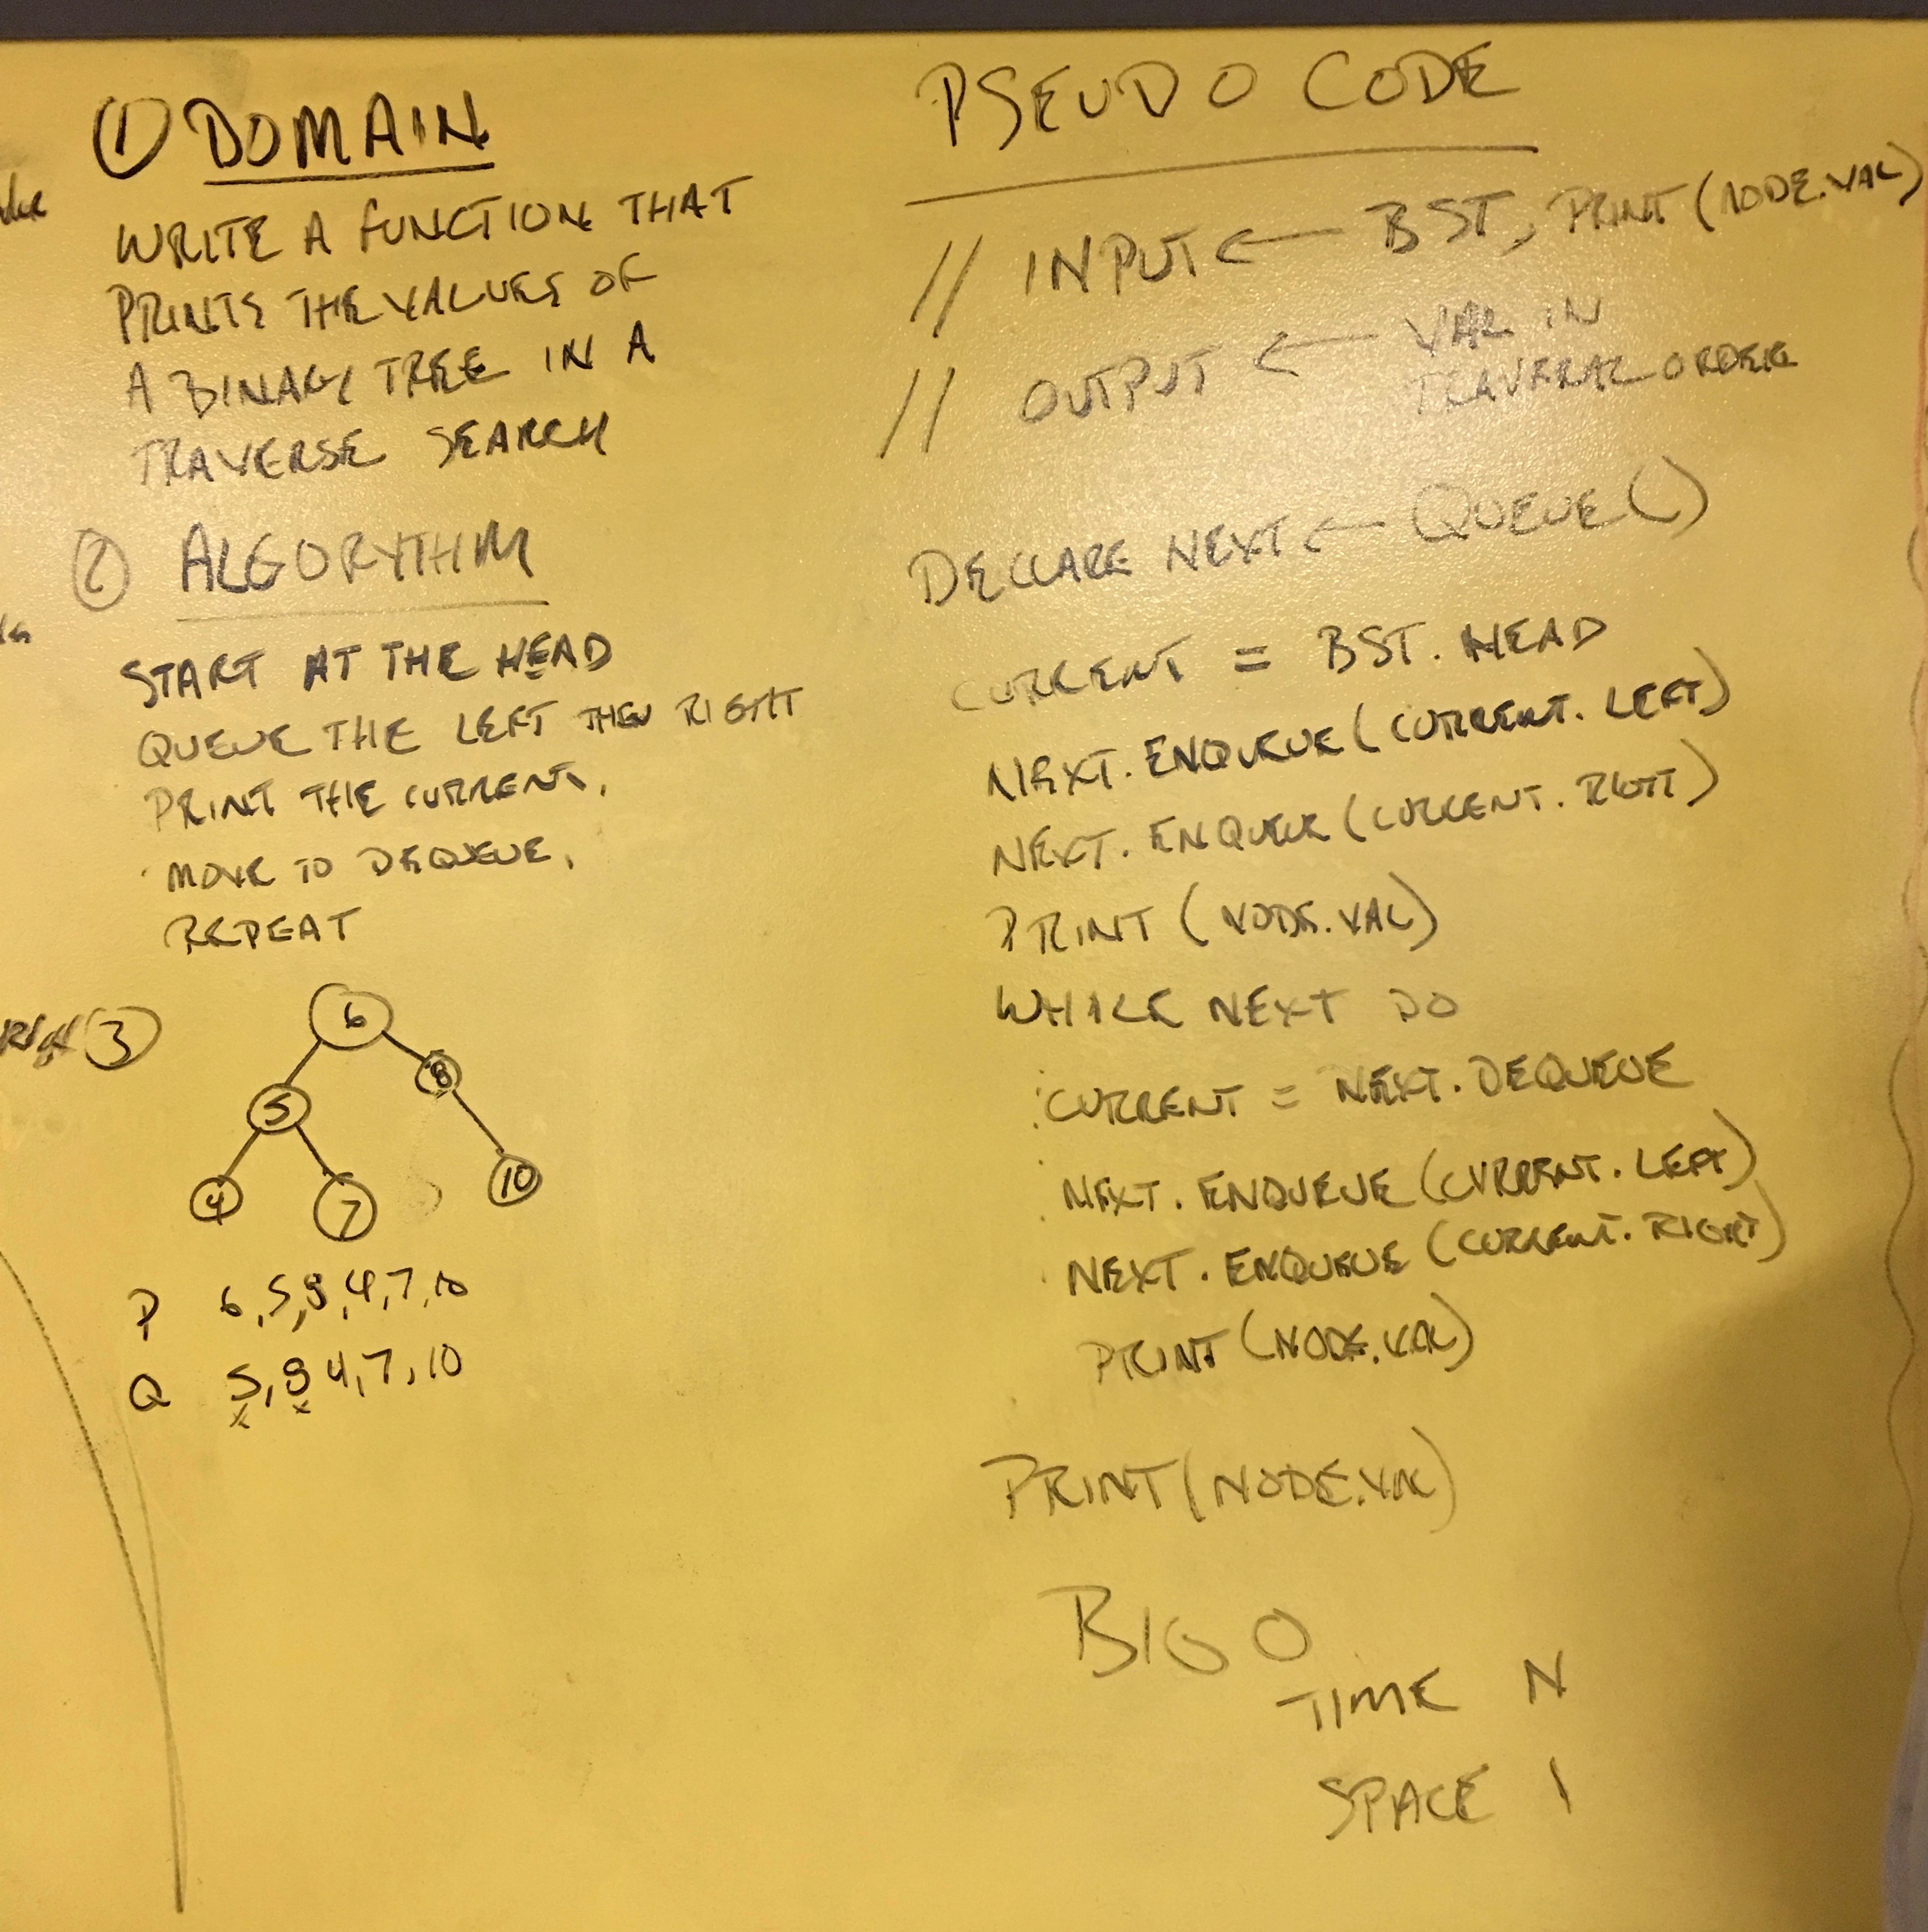 ① DOMAIN
WRITE A FUNCTION THAT
PRINTS THE VALUES OF
A BINARY TREE IN A
TRAVERSE SEARCH
② ALGORYTHIM
START AT THE HEAD
QUEUE THE LEFT THEN RIGHT
PRINT THE CURRENT.
MOVE TO DEQUEUE.
REPEAT
③
6
8
5
4
7
10
P 6,5,8,4,7,10
Q 5,8 4,7,10
x x
PSEUDO CODE
// INPUT ← BST, PRINT(NODE.VAL)
// OUTPUT ← VAL IN
TRAVERAL ORDER
DECLARE NEXT ← QUEUE()
CURRENT = BST. HEAD
NEXT. ENQUEUE (CURRENT. LEFT)
NEXT. ENQUEUE (CURRENT. RIGHT)
PRINT (NODE.VAL)
WHILE NEXT DO
CURRENT = NEXT. DEQUEUE
NEXT. ENQUEUE (CURRENT. LEFT)
NEXT. ENQUEUE (CURRENT. RIGHT)
PRINT (NODE.VAL)
PRINT (NODE.VAL)
BIG O
TIME N
SPACE 1